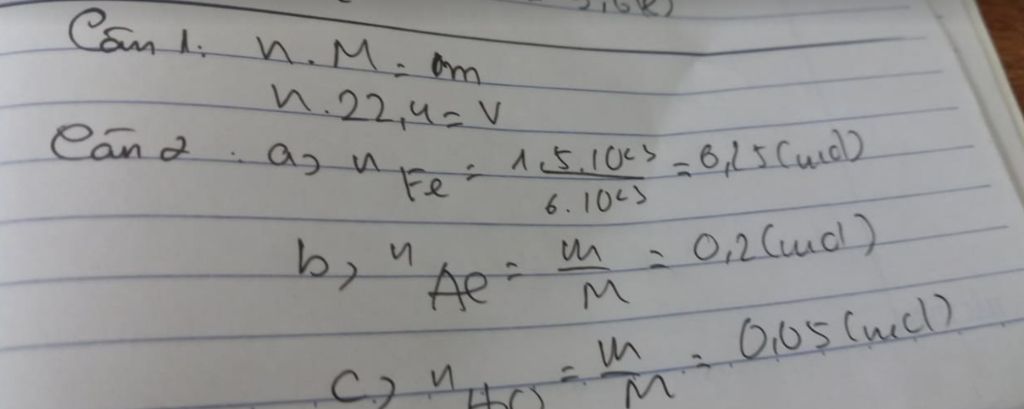 Câu 1: n.M = m
n.22,4 = V
Câu 2: a, n Fe = 1,5.10²³ / 6.10²³ = 0,25 (mol)
b, n Al = m / M = 0,2 (mol)
c, n = m / M = 0,05 (mol)